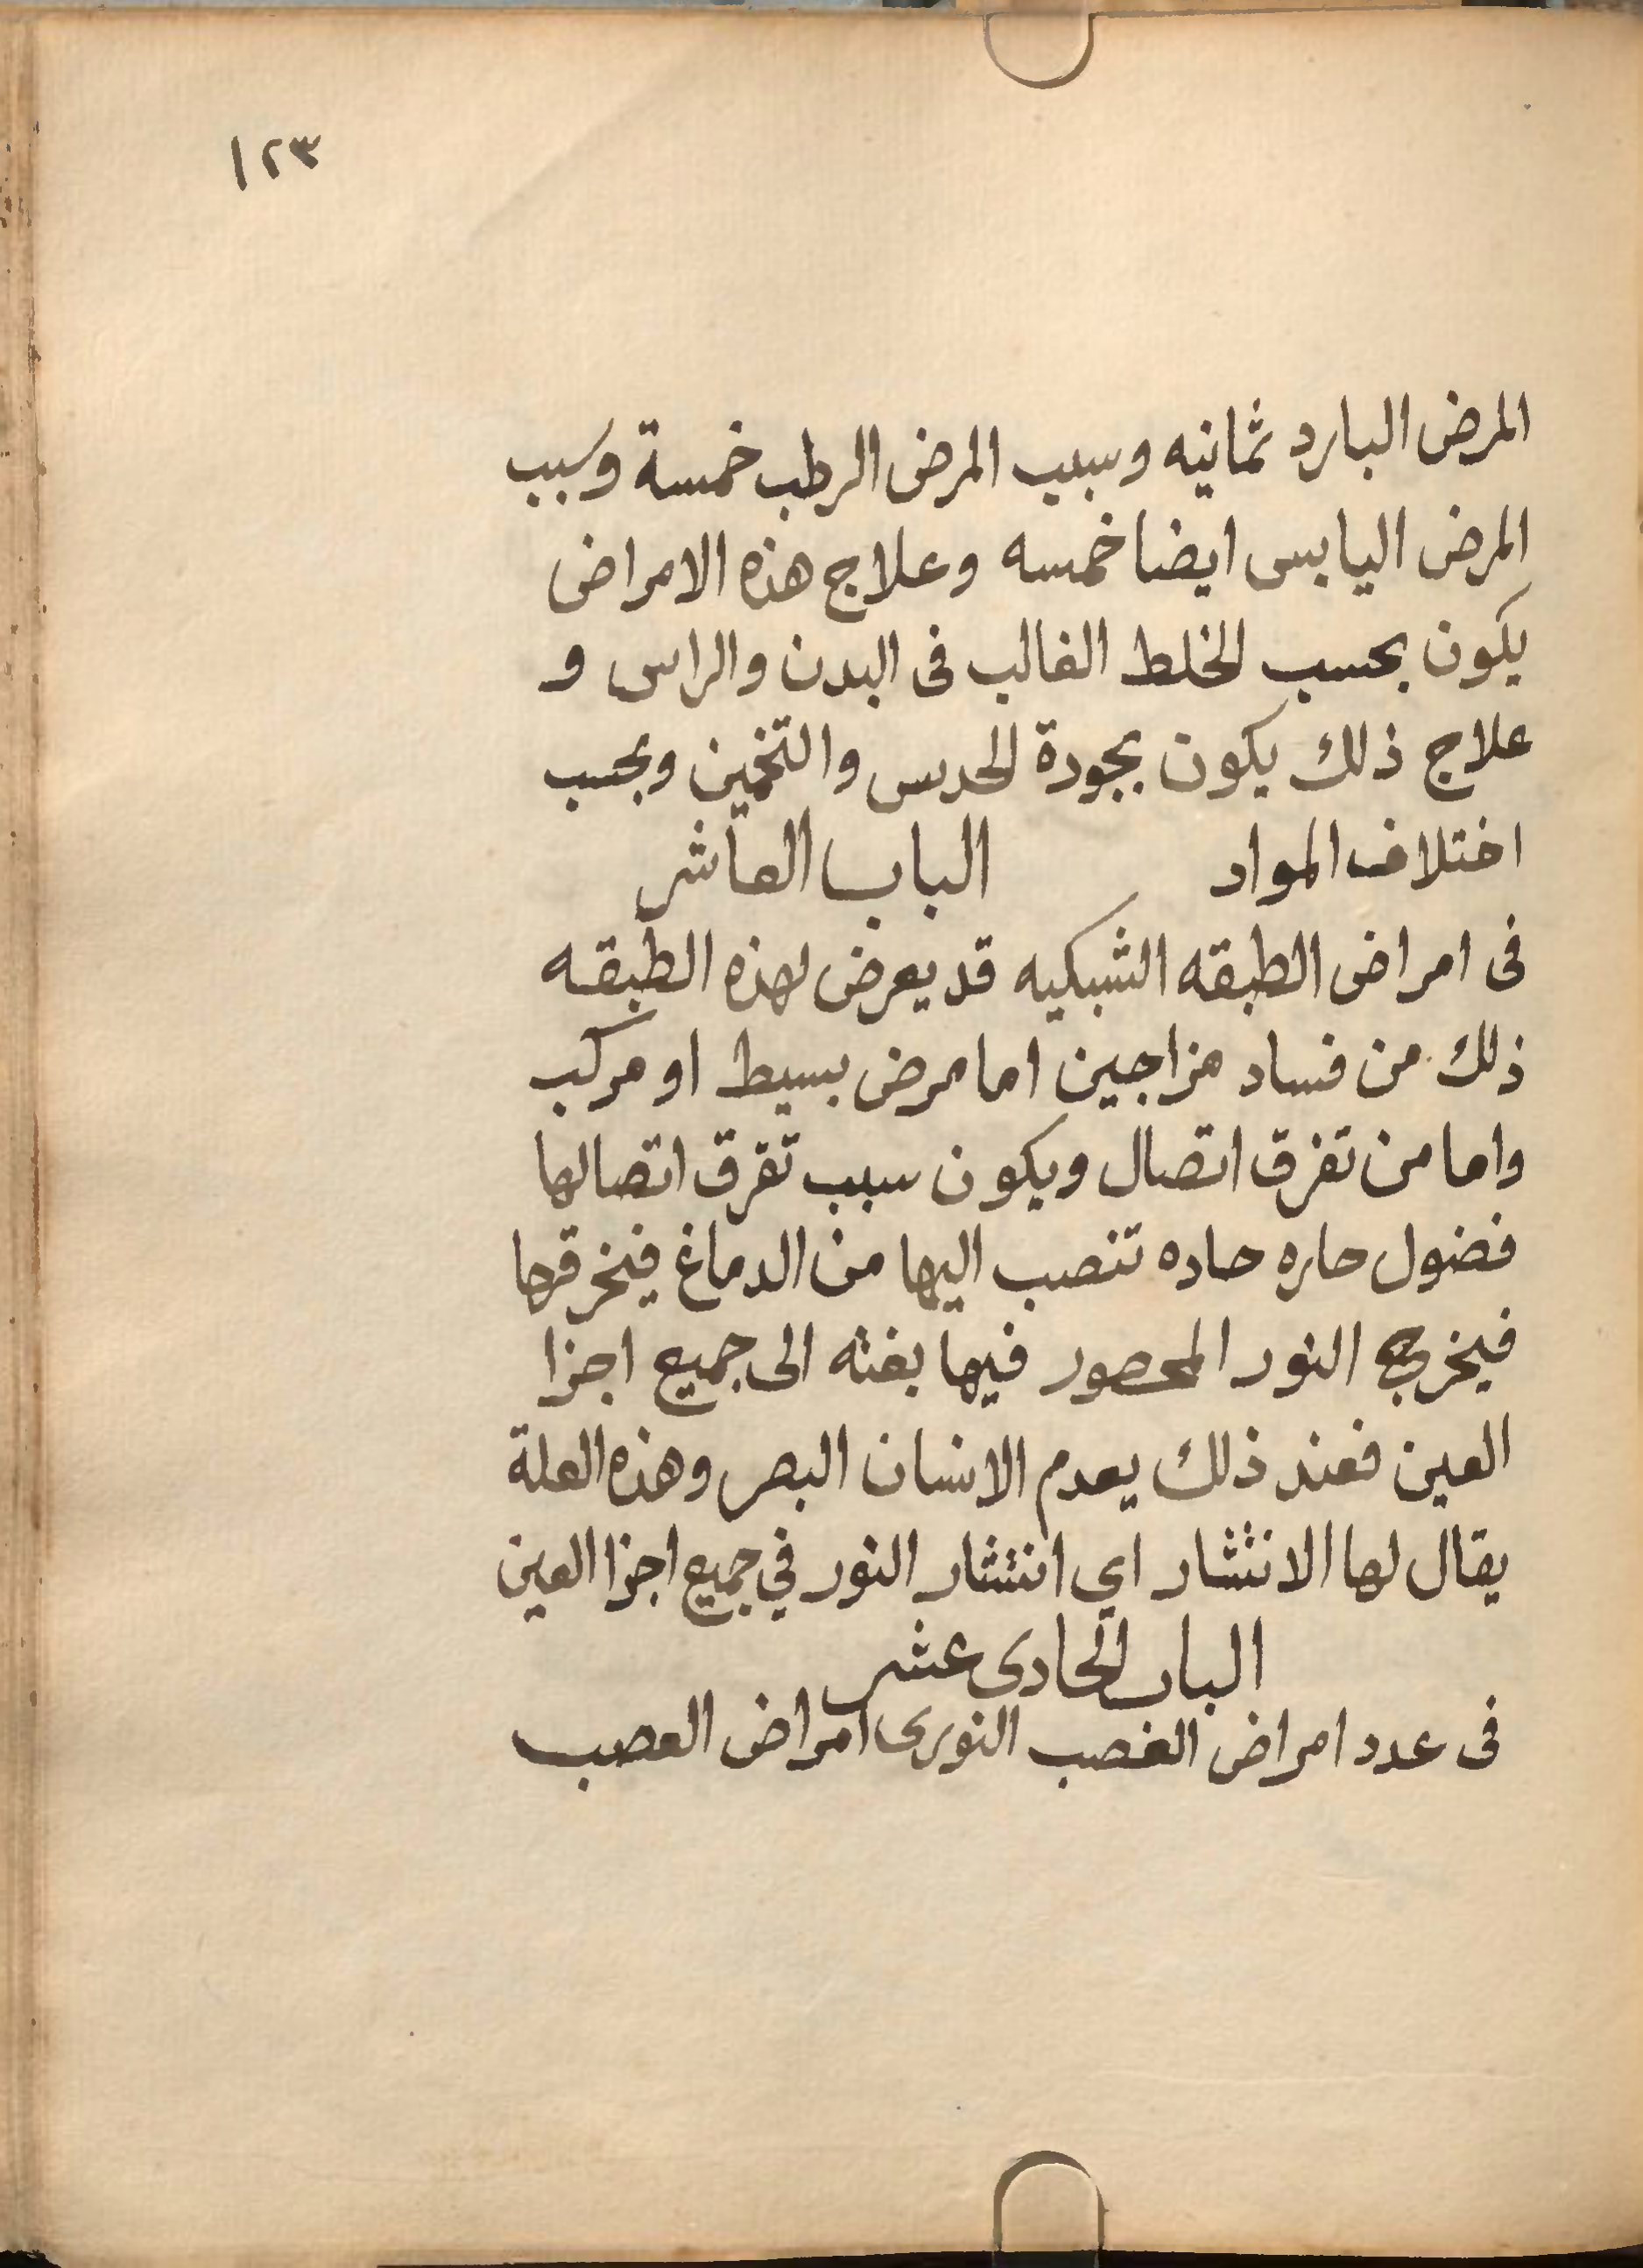 ١٢٣
المرض البارد ثمانيه وسبب المرض الرطب خمسة وسبب
المرض اليابس ايضا خمسه وعلاج هذه الامراض
يكون بحسب الخلط الغالب فى البدن والراس و
علاج ذلك يكون بجودة الحدس والتخمين وبحسب
اختلاف المواد الباب العاشر
فى امراض الطبقه الشبكيه قد يعرض لهذه الطبقه
ذلك من فساد مزاجين اما مرض بسيط او مركب
واما من تفرق اتصال ويكون سبب تفرق اتصالها
فضول حاره حاده تنصب اليها من الدماغ فيخرقها
فيخرج النور المحصور فيها بغته الى جميع اجزا
العين فعند ذلك يعدم الانسان البصر وهذه العلة
يقال لها الانتشار اي انتشار النور في جميع اجزا العين
الباب الحادى عشر
فى عدد امراض الغصب النورى امراض العصب